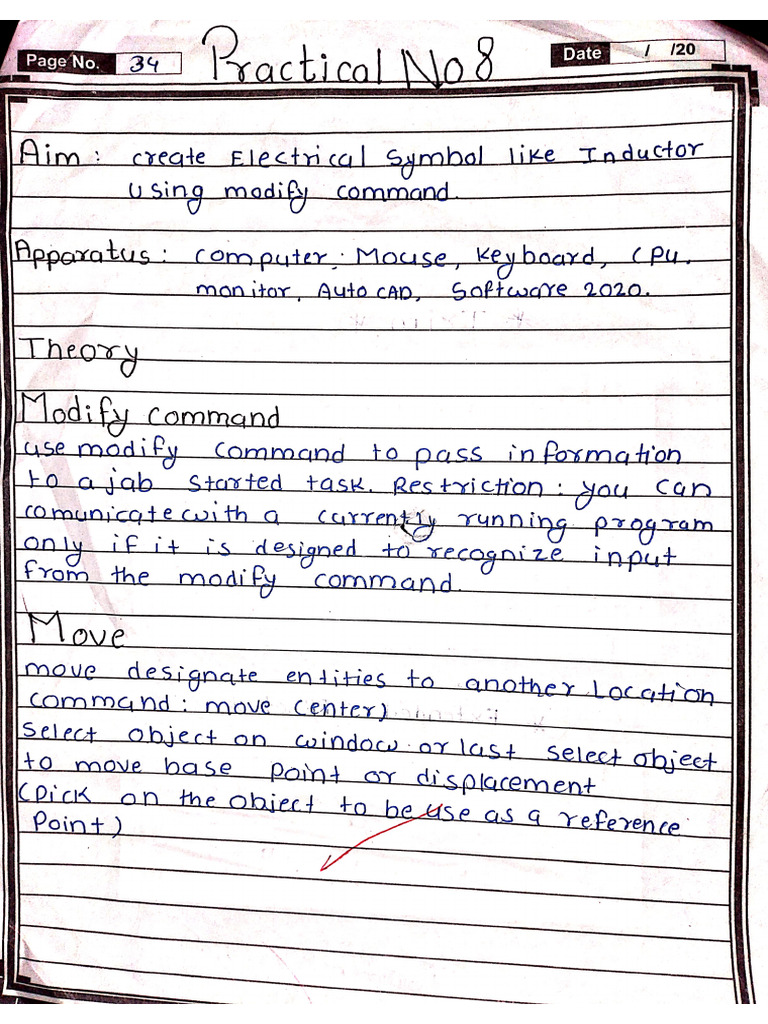 Page No. 34
Practical No 8
Date / /20
Aim: create Electrical Symbol like Inductor
using modify command.
Apparatus: computer, Mouse, Keyboard, CPU.
monitor, Auto CAD, Software 2020.
Theory
Modify command
use modify command to pass information
to a jab started task. Restriction: you can
comunicate with a currently running program
only if it is designed to recognize input
from the modify command.
Move
move designate entities to another Location
command: move center)
select object on window or last select object
to move base point or displacement
(pick on the object to be use as a reference
Point)